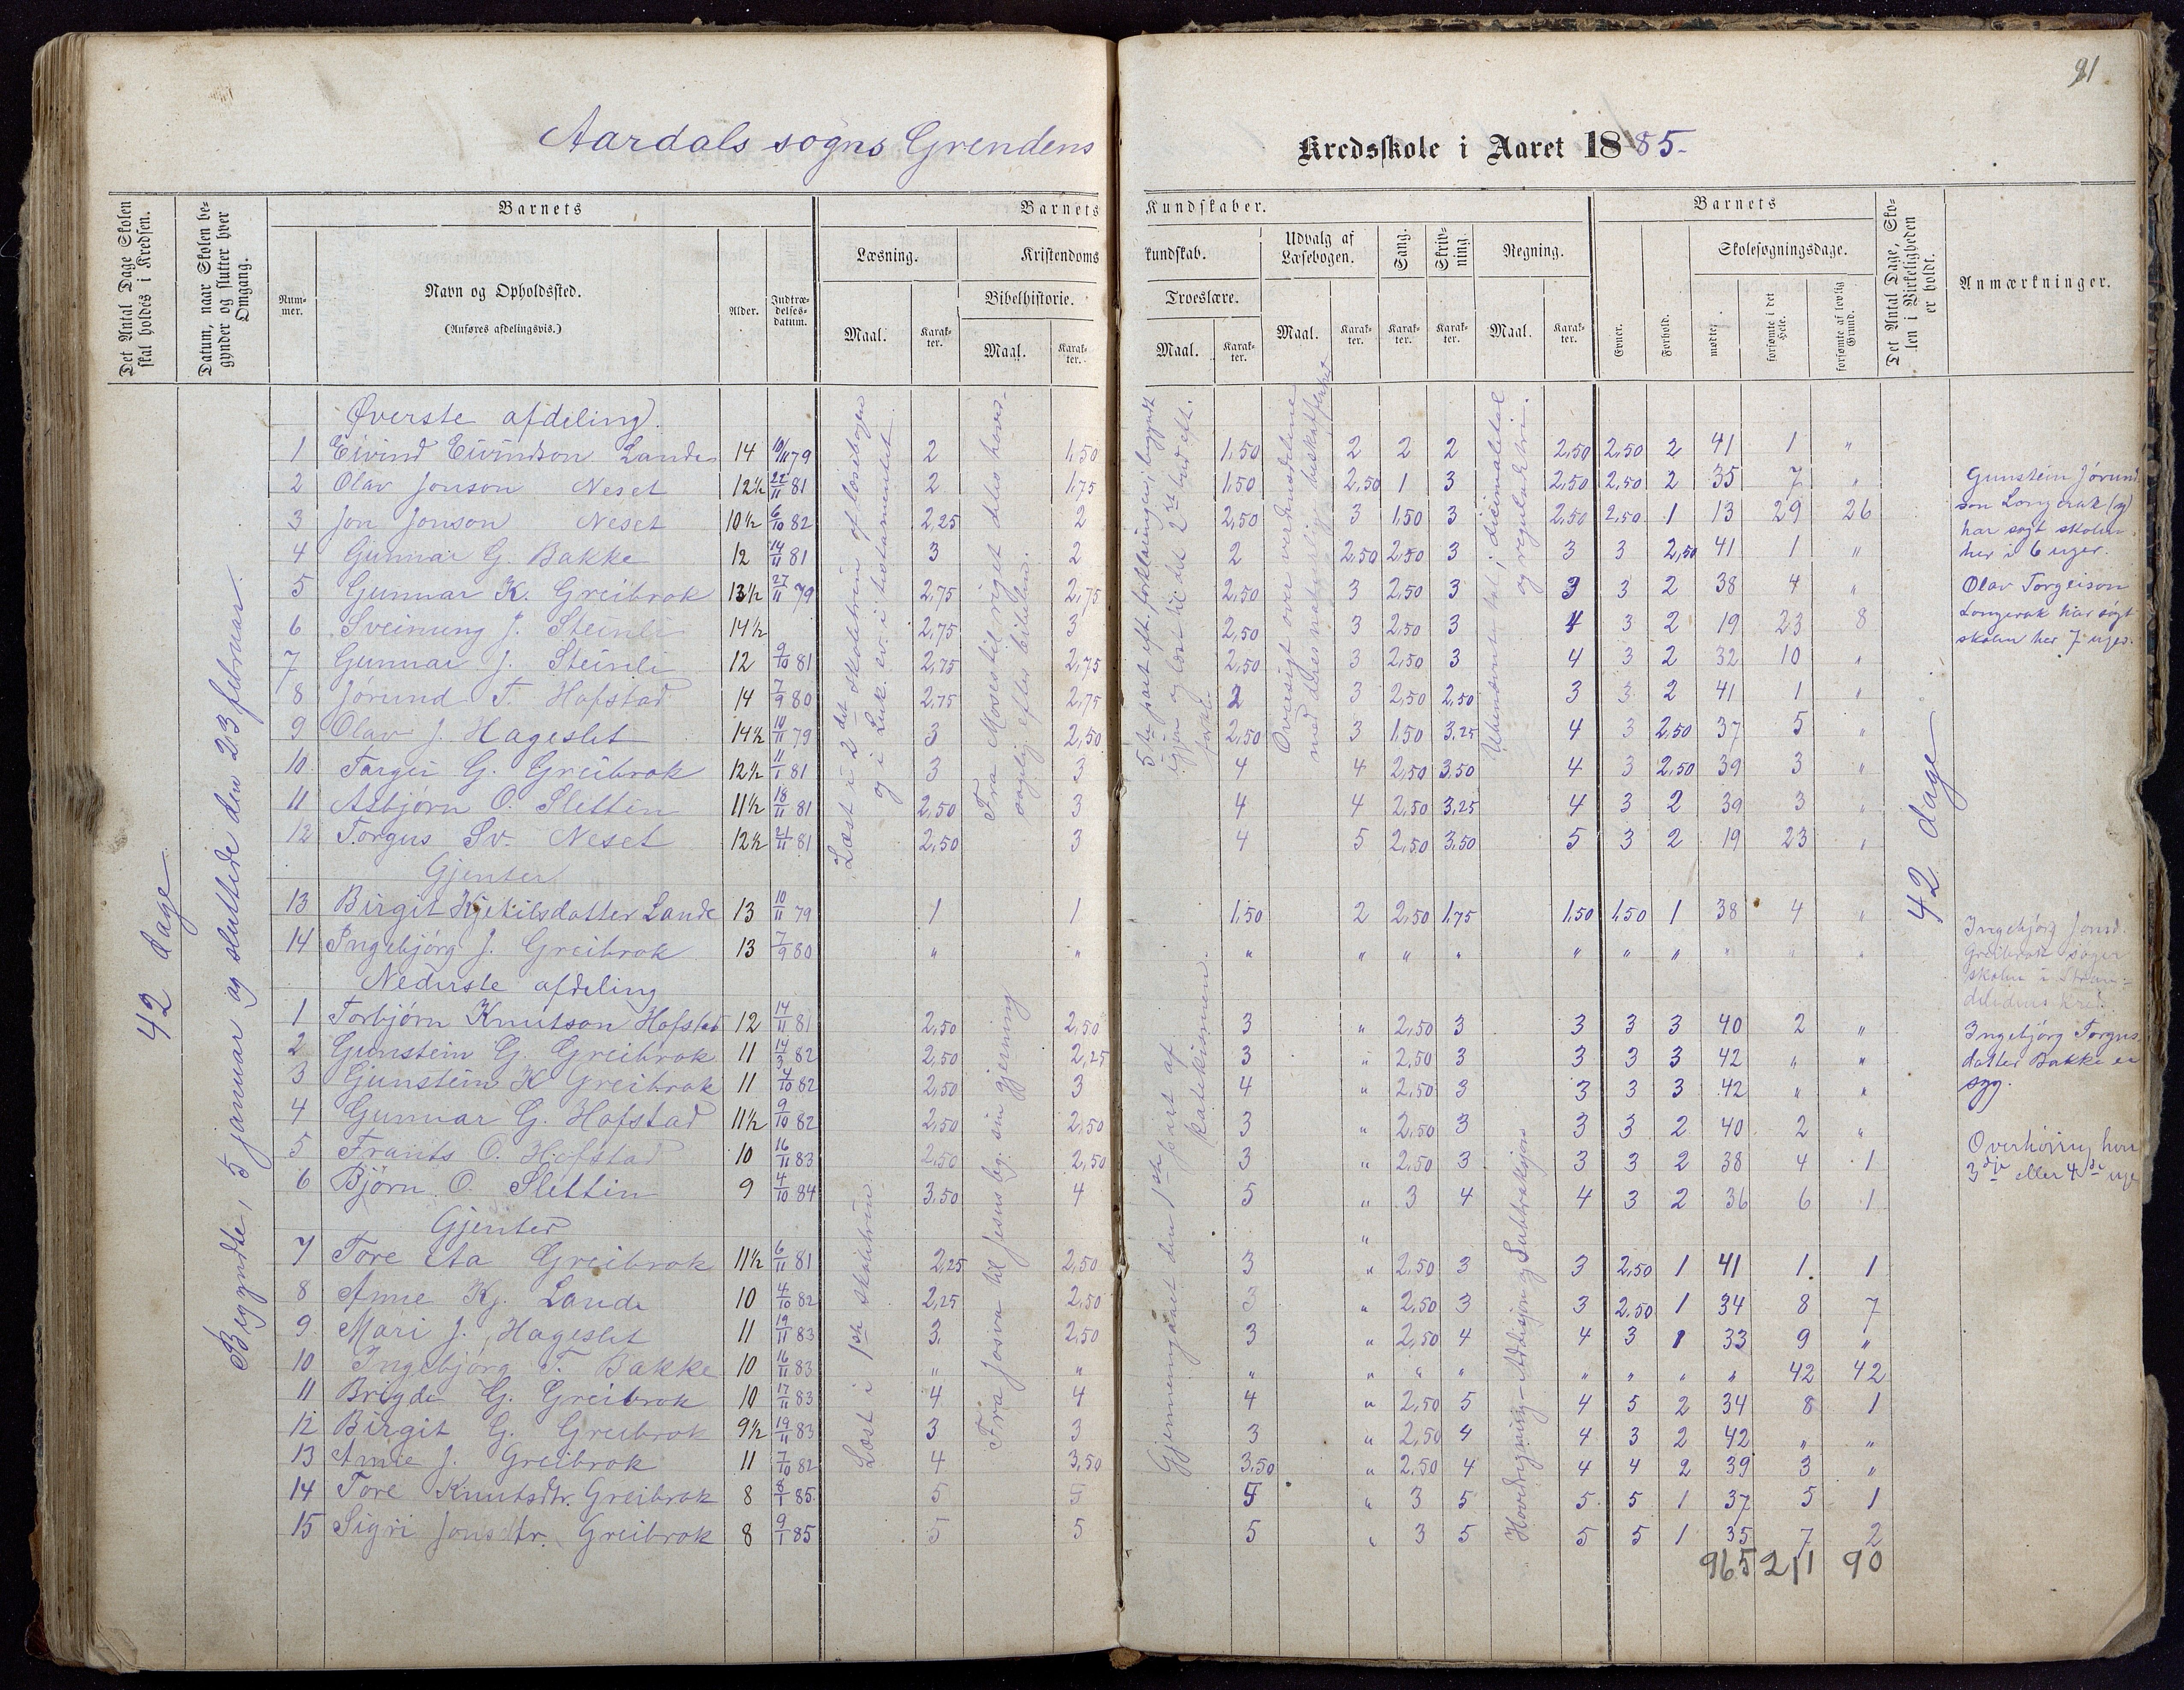 91
Aardals sogns Grendens Kredsskole i Aaret 1885-
Det Antal Dage Skolen skal holdes i Kredsen.
Datum, naar Skolen begynder og slutter hver Omgang.
Barnets
Nummer.
Navn og Opholdssted.
(Anføres afdelingsvis.)
Alder.
Indtrædelses-datum.
Barnets Kundskaber.
Læsning.
Maal.
Karakter.
Kristendomskundskab.
Bibelhistorie.
Maal.
Karakter.
Troeslære.
Maal.
Karakter.
Udvalg af Læsebogen.
Maal.
Karakter.
Sang.
Karakter.
Skrivning.
Karakter.
Regning.
Maal.
Karakter.
Barnets
Evner.
Forhold.
Skolesøgningsdage.
mødte.
forsømte i det Hele.
forsømte af lovlig Grund.
Det Antal Dage, Skolen i Virkeligheden er holdt.
Anmærkninger.
42 dage
Begyndte, 5 januar og sluttede den 23 februar.
Øverste afdeling.
1 Eivind Eivindson Lande 14 10/11 79 2 1,50 1,50 2 2 2 2,50 2,50 2 41 1 "
2 Olav Jonson Neset 12½ 22/11 81 2 1,75 1,50 2,50 1 3 2,50 2,50 2 35 7 "
3 Jon Jonson Neset 10½ 6/10 82 2,25 2 2,50 3 1,50 3 2,50 2,50 1 13 29 26
4 Gunnar G. Bakke 12 14/11 81 3 2 2 2,50 2,50 3 3 3 2,50 41 1 "
5 Gunnar K. Greibrok 13½ 27/11 79 2,75 2,75 2,50 3 2,50 3 3 3 2 38 4 "
6 Sveinung J. Steinli 14½ 2,75 3 2,50 3 2,50 3 4 3 2 19 23 8
7 Gunnar J. Steinli 12 9/10 81 2,75 2,75 2,50 3 2,50 3 4 3 2 32 10 "
8 Jørund T. Hofstad 14 7/9 80 2,75 2,75 2 3 2,50 2,50 3 3 2 41 1 "
9 Olav J. Hageslet 14½ 10/11 79 3 2,50 2,50 3 1,50 3,25 4 3 2,50 37 5 "
10 Targei G. Greibrok 12½ 11/1 81 3 3 4 4 2,50 3,50 4 3 2,50 39 3 "
11 Asbjørn O. Slettin 11½ 18/11 81 2,50 3 4 4 2,50 3,25 4 3 2 39 3 "
12 Torgus Sv. Neset 12½ 21/11 81 2,50 3 4 5 2,50 3,50 5 3 2 19 23 "
Gjenter
13 Birgit Kjetilsdatter Lande 13 10/11 79 1 1 1,50 2 2,50 1,75 1,50 1,50 1 38 4 "
14 Ingebjørg J. Greibrok 13 7/9 80 " " " " " " " " " " " "
Læst i 2det skoletrin af læsebogen
og i Luk. ev. i testamentet
Fra Moses til riget deles hoved-
sagelig efter bibelen.
5te part eft. forklaringen, begyndt
igjen og læst til det 2det bud eft.
forkl.
Oversigt over verdensdelene
med deres naturlige beskaffenhet
Ubenævnte tal i decimaltal
og reguladetri.
Nederste afdeling
1 Torbjørn Knutson Hofstad 12 14/11 81 2,50 2,50 3 " 2,50 3 3 3 3 40 2 "
2 Gunstein G. Greibrok 11 14/3 82 2,50 2,25 3 " 2,50 3 3 3 3 42 " "
3 Gunstein K Greibrok 11 4/10 82 2,50 3 4 " 2,50 3 3 3 3 42 " "
4 Gunnar G. Hofstad 11½ 9/10 82 2,50 2,50 3 " 2,50 3 3 3 2 40 2 "
5 Frants O. Hofstad 10 16/11 83 2,50 2,50 3 " 2,50 3 3 3 2 38 4 1
6 Bjørn O. Slettin 9 4/10 84 3,50 4 5 " 3 4 4 3 2 36 6 1
Gjenter "
7 Tore Aa Greibrok 11½ 6/11 81 2,25 2,50 3 " 2,50 3 3 2,50 1 41 1 1
8 Anne Kj. Lande 10 4/10 82 2,25 2,50 3 " 2,50 3 3 2,50 1 34 8 7
9 Mari J. Hageslet 11 19/11 83 3 2,50 3 " 2,50 4 4 3 1 33 9 "
10 Ingebjørg T. Bakke 10 16/11 83 " " " " " " " " " " 42 42
11 Brigde G. Greibrok 10 17/11 83 4 4 4 " 2,50 5 4 5 2 34 8 1
12 Birgit G. Greibrok 9½ 19/11 83 3 3 3 " 2,50 4 4 3 2 42 " "
13 Anne J. Greibrok 11 7/10 82 4 3,50 3,50 " 2,50 4 4 4 2 39 3 "
14 Tore Knutsdtr. Greibrok 8 8/1 85 5 5 5 " 3 5 5 5 1 37 5 1
15 Sigri Jonsdtr. Greibrok 8 9/1 85 5 5 5 " 3 5 5 5 1 35 7 2
965 211 90
Læst i 1ste skoletrin
Fra Josva til Jesus beg. sin gjerning
Gjennemgaaet den 1ste part af
katekismen.
Hovedregning - Addisjon og Subtraksjon
42 dage
Gunstein Jørund-
son Longerak (g)
har søgt skolen
her i 6 uger.
Olav Torgeison
Longerak har søgt
skolen her 7 uger.
Ingebjørg Jonsd.
Greibrok søger
skolen i
Ingebjørg Torgus-
datter Bakke er
syg.
Overhøring hver
3die eller 4de uge